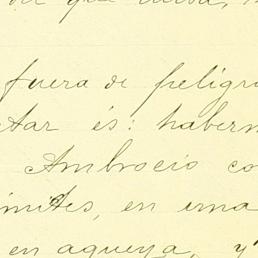 fuera de peligro
tar és: habern
Ambrocio co
mites, en una
en aqueya, y